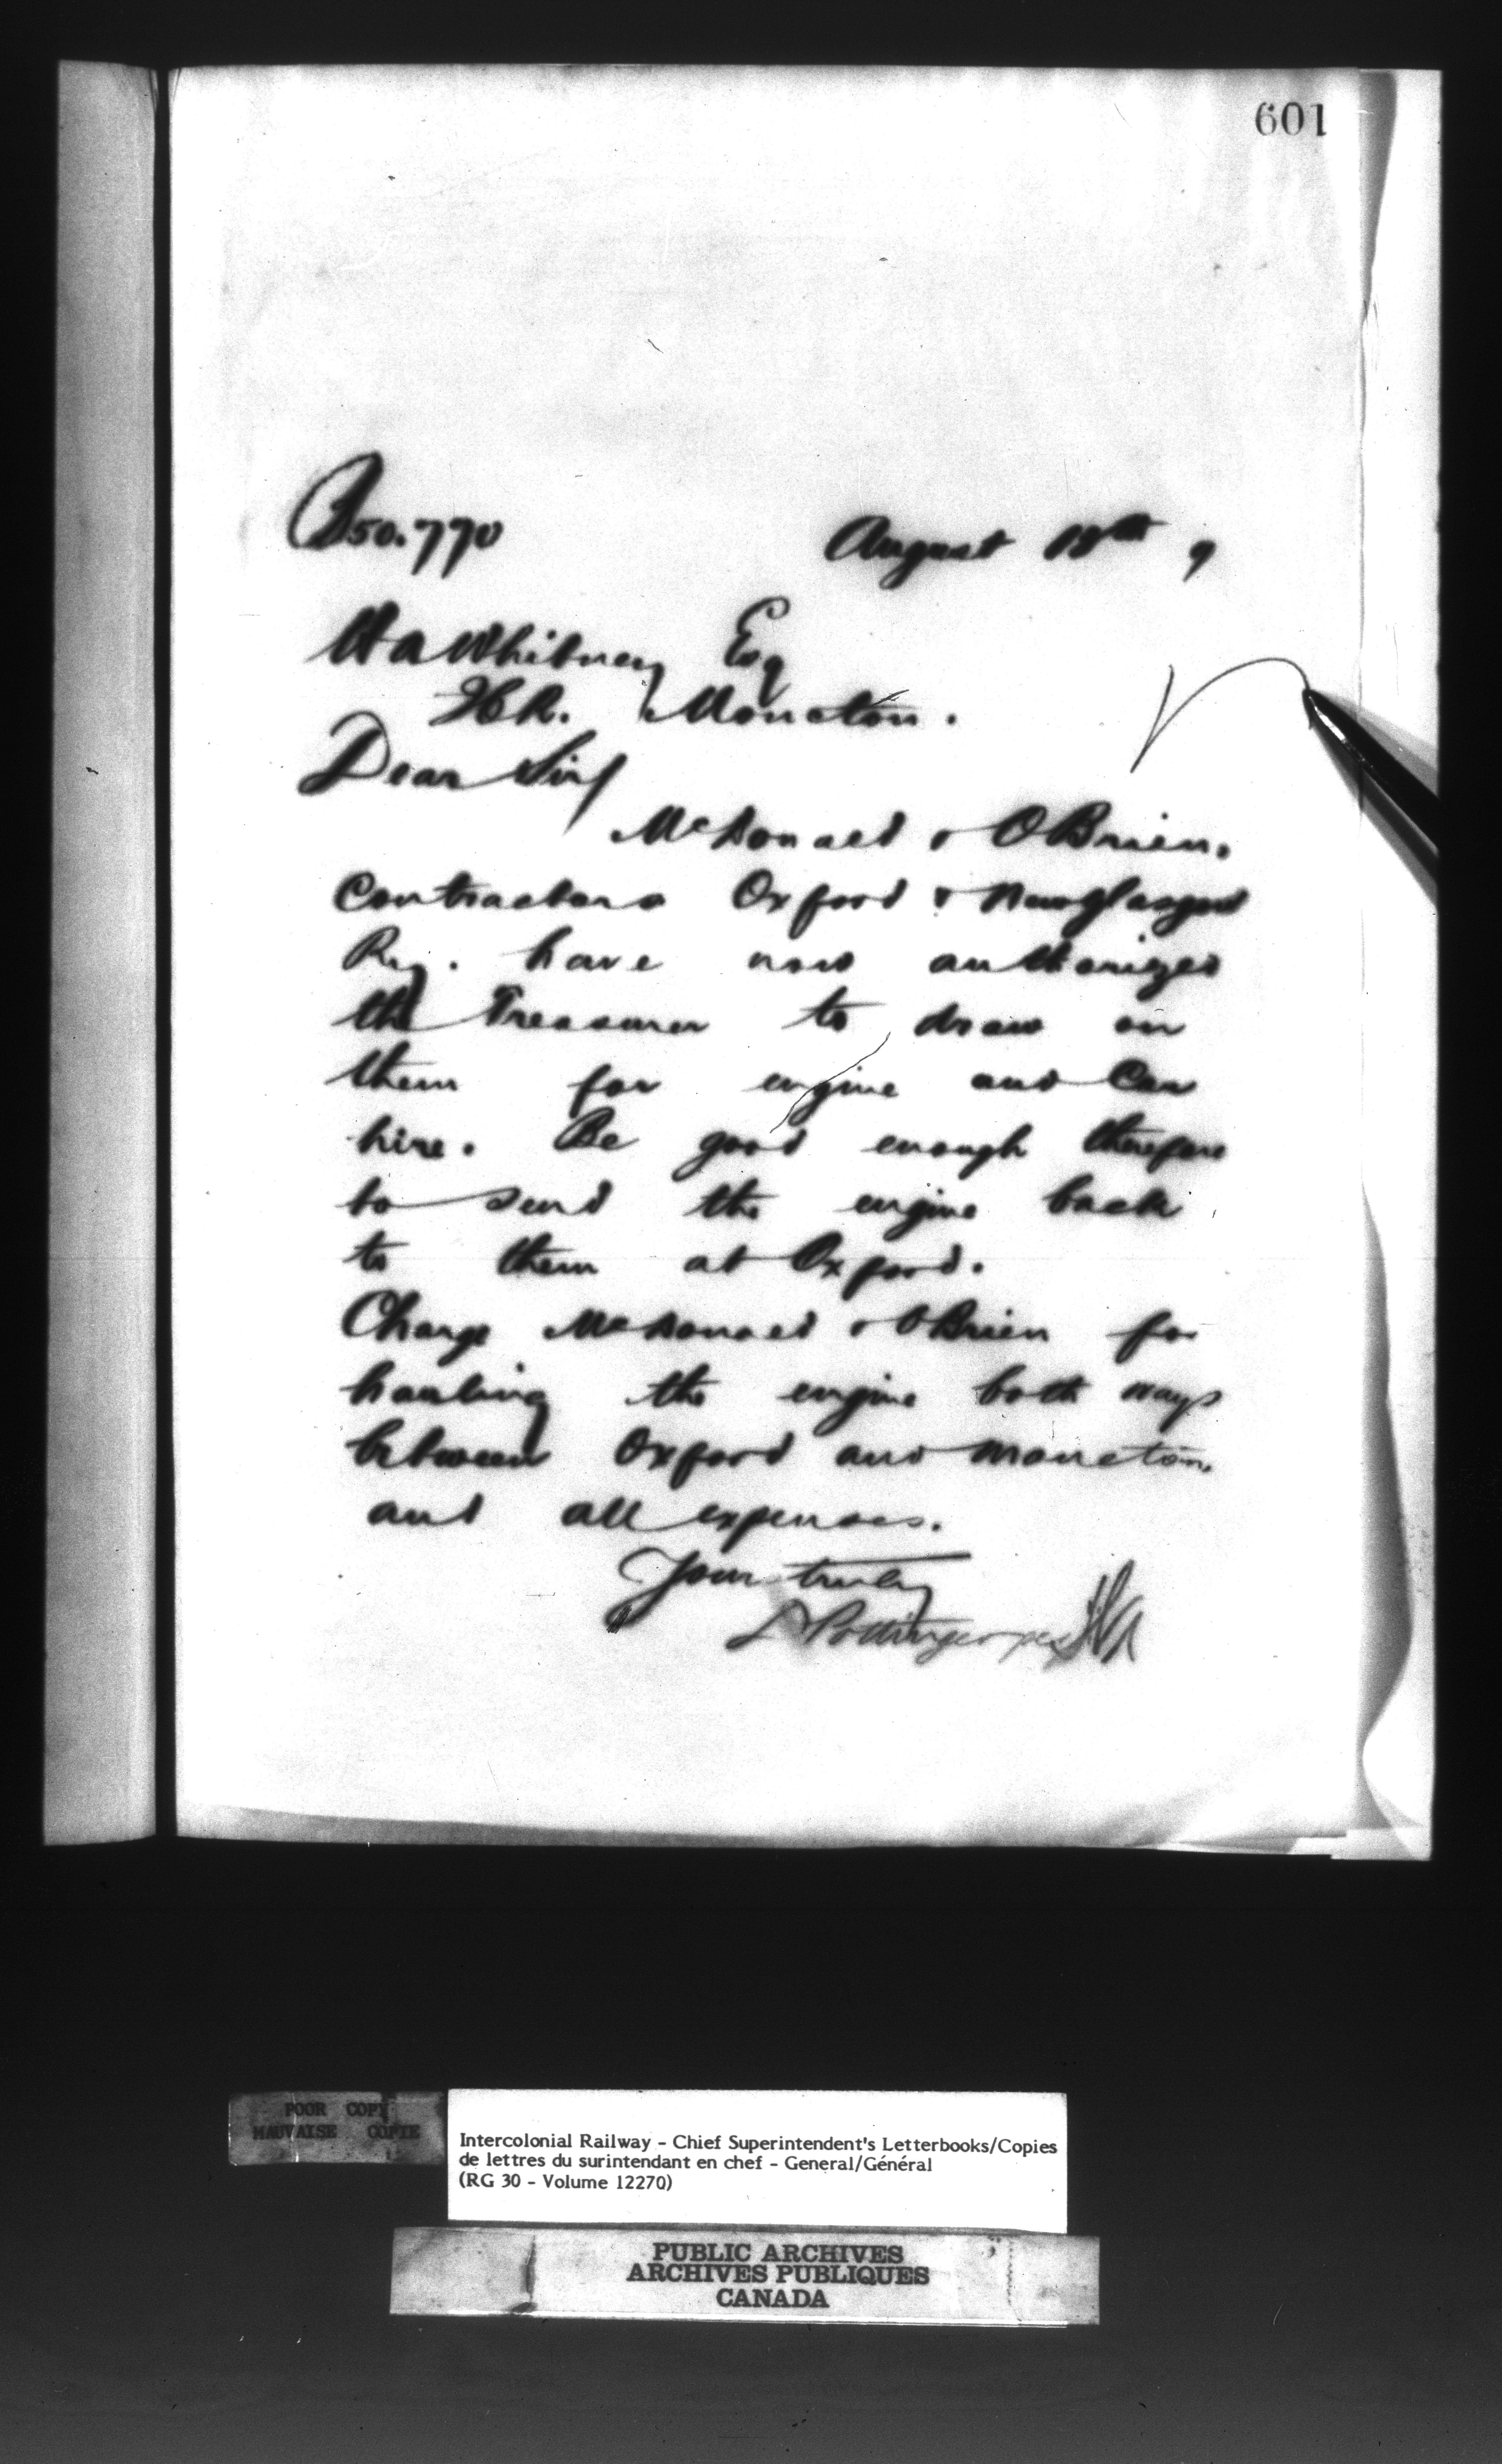 601
B50.770 August 18th 9
H A Whitney Esq
ICR. Moncton.
Dear Sir/
McDonald & OBrien.
Contractors Oxford & New Glasgow
Ry. have now authorized
the Treasurer to draw on
them for engine and Car
hire. Be good enough therefore
to send the engine back
to them at Oxford.
Charge McDonald & OBrien for
hauling the engine both ways
between Oxford and Moncton.
and all expenses.
Yours truly
D Pottinger per
POOR COPY
MAUVAISE COPIE
Intercolonial Railway - Chief Superintendent's Letterbooks/Copies
de lettres du surintendant en chef - General/Général
(RG 30 - Volume 12270)
PUBLIC ARCHIVES
ARCHIVES PUBLIQUES
CANADA